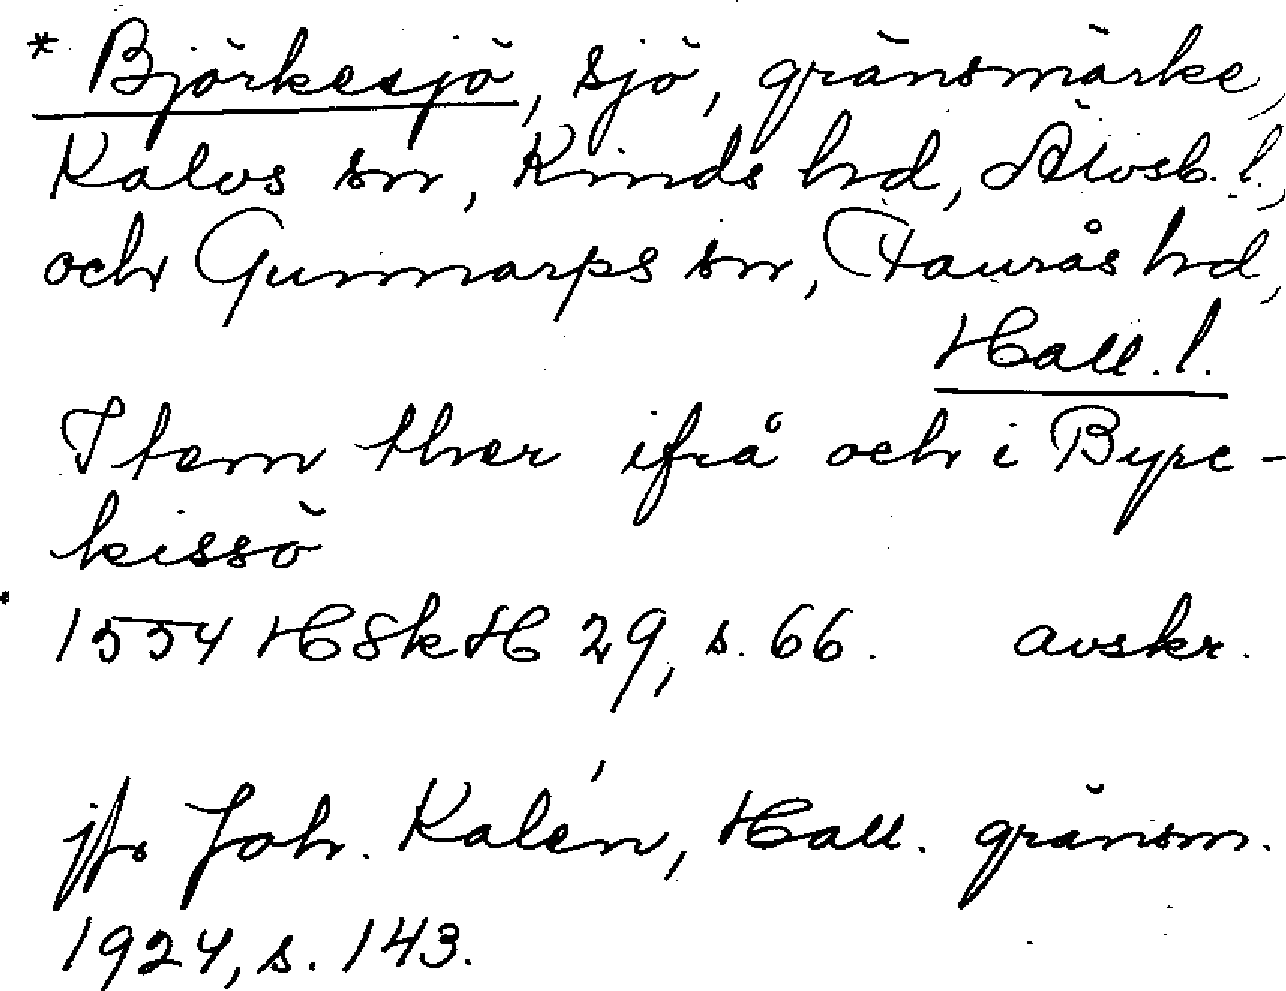 * Björkesjö, sjö, gränsmärke,
Kalvs sn, Kinds hd, Älvsb. l.,
och Gunnarps sn, Faurås hd,
Hall. l.
Item ther ifrå och i Byre-
kissö
1554 HSkH 29, s. 66. avskr.
jfr Joh. Kalén, Hall. gränsm.
1924, s. 143.